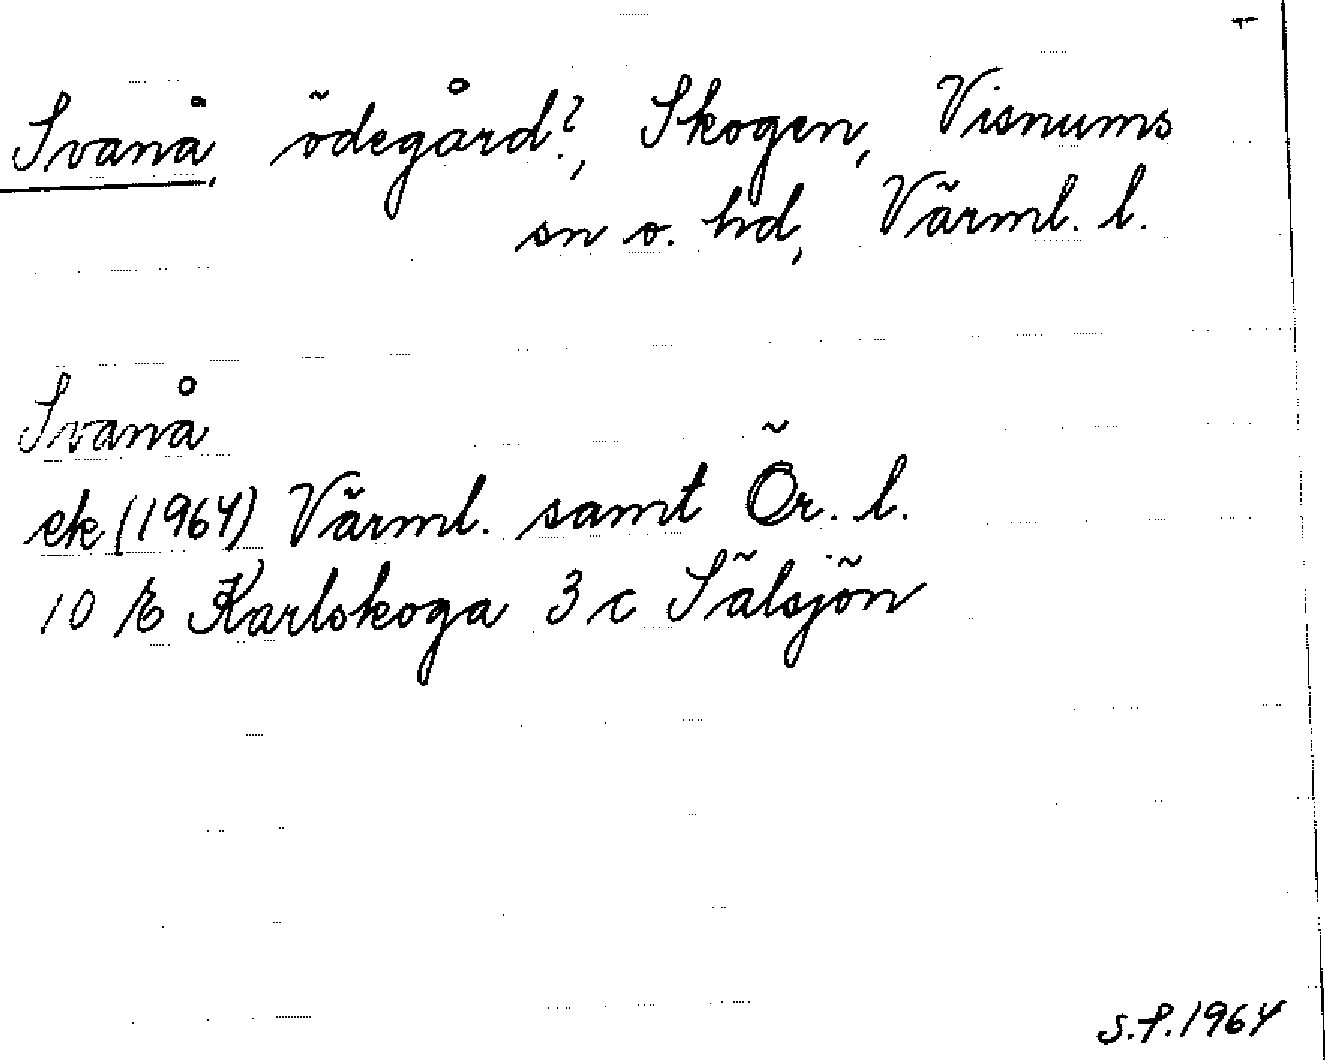 Svanå, ödegård?, Skogen, Visnums
sn o. hd, Värml. l.
Svanå
ek (1964) Värml. samt Ör. l.
10 E Karlskoga 3 c Sälsjön
S.F. 1964